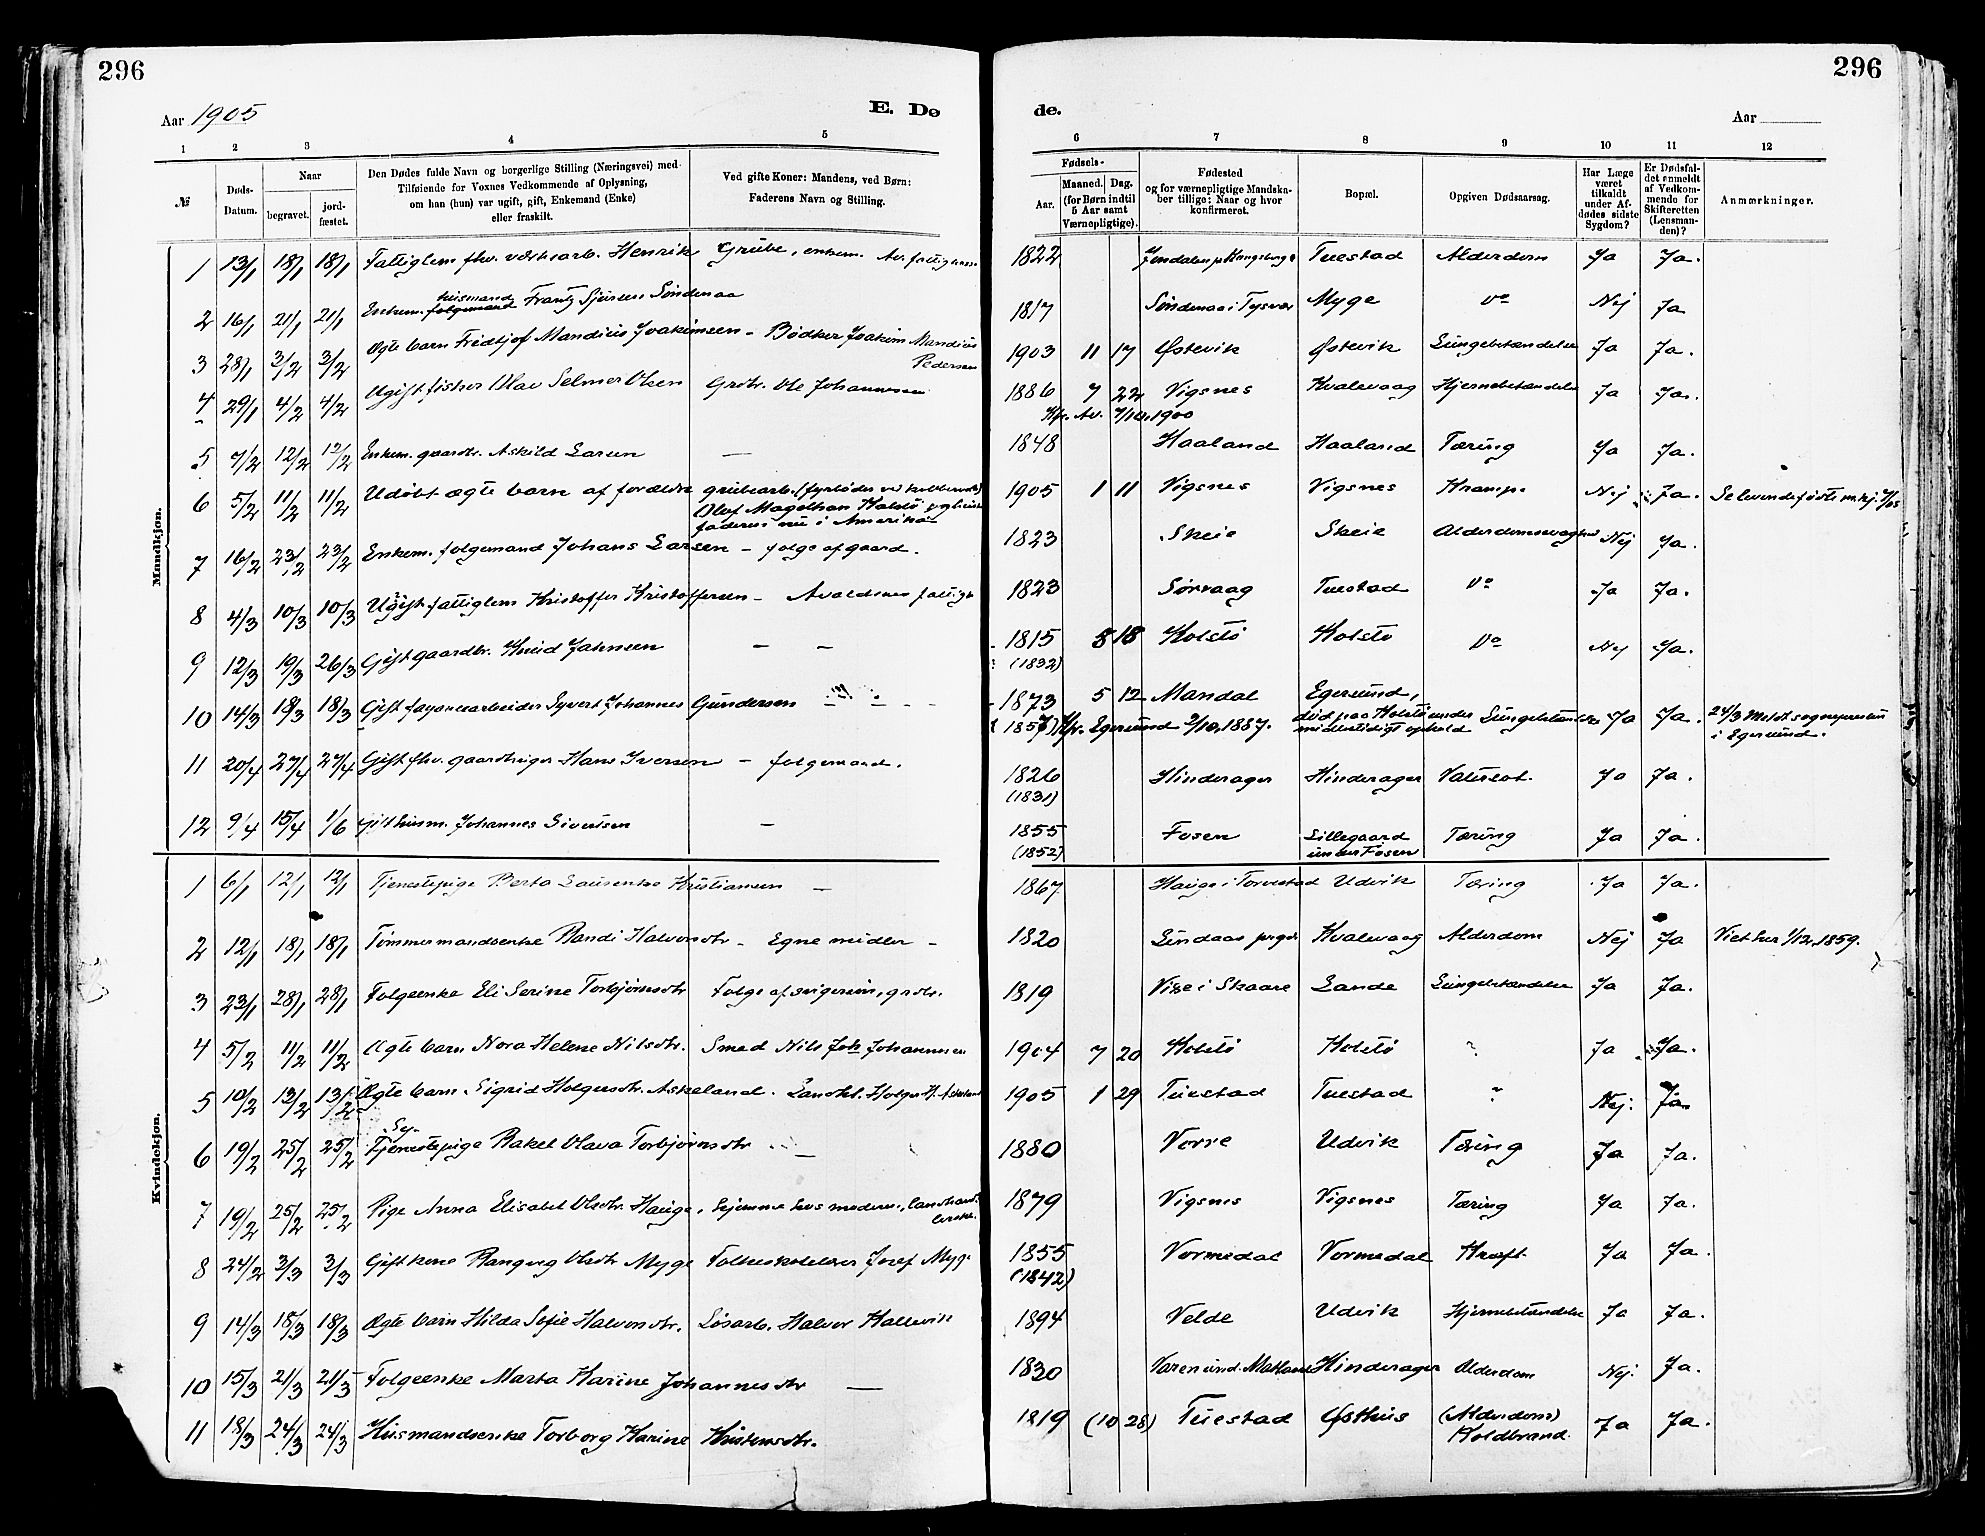 296
296
Aar 1905
E. Dø
de.
Aar
1 2 3 4 5 6 7 8 9 10 11 12
№
Døds-Datum.
Naar
begravet.
jord-fæstet.
Den Dødes fulde Navn og borgerlige Stilling (Næringsvei) med
Tilføiende for Voxnes Vedkommende af Oplysning,
om han (hun) var ugift, gift, Enkemand (Enke)
eller fraskilt.
Ved gifte Koner: Mandens, ved Børn:
Faderens Navn og Stilling.
Fødsels-
Aar.
Maaned.
Dag.
(for Børn indtil
5 Aar samt
Værnepligtige).
Fødested
og for værnepligtige Mandska-
ber tillige: Naar og hvor
konfirmeret.
Bopæl.
Opgiven Dødsaarsag.
Har Læge
været
tilkaldt
under Af-
dødes sidste
Sygdom?
Er Dødsfal-
det anmeldt
af Vedkom-
mende for
Skifteretten
(Lensman-
den)?
Anmærkninger.
Mandkjøn.
1 13/1 18/1 18/1 Fattiglem fhv. Henrik Grube, enkem. Av. 1822 Tuestad Alderdom Ja Ja.
husmand
2 16/1 21/1 21/1 Enkem. folgemand Frantz Sjursen Søndenaa 1817 Søndenaa i Tysvær Myge Do Nej Ja
3 28/1 3/2 3/2 Ægte barn Fridtjof Mandius Joakimsen - Bødker Joakim Mandius 1903 11 17 Østevik Østevik Lungebetændelse Ja Ja.
Pedersen
4 29/1 4/2 4/2 Ugift fisker Olav Selmer Olsen Grdbr. Ole Johannesen 1886 7 22 Vigsnes Kvalevaag Hjernebetændelse Ja Ja.
Kfr. Av. 7/10.1900
5 7/2 12/2 12/2 Enkem. gaardbr. Askild Larsen — 1848 Haaland Haaland Tæring Ja Ja.
6 5/2 11/2 11/2 Udøbt ægte barn af forældre grubearb. (fyrbøder ved 1905 1 11 Vigsnes Vigsnes Krampe Nej Ja.
Olaf Magelhan Holstø
faderen nu i Amerika
7 16/2 23/2 23/2 Enkem. folgemand Johans Larsen - folge af gaard. 1823 Skeie Skeie Alderdomssvaghed Nej Ja.
8 4/3 10/3 10/3 Ugift fattiglem Kristoffer Kristoffersen - Avaldsnes 1823 Sørvaag Tuestad Do Ja Ja.
9 12/3 19/3 26/3 Gift gaardbr. Knud Jahnsen — — 1815 8 18 Holstø Holstø Do Nej Ja.
(1832)
10 14/3 18/3 18/3 Gift fayancearbeider Syvert Johannes Gundersen 1873 5 12 Mandal Egersund,
Kfr. Egersund 2/10.1887. død paa Holstø under Lungebetændelse Ja Ja. 24/3 Meldt sognepresten
midlertidigt ophold i Egersund.
11 20/4 27/4 27/4 Gift fhv. gaardbruger Hans Iversen - folgemand. 1826 Hinderager Hinderager Vatersot. Ja Ja.
(1831)
12 9/4 15/4 1/6 Gift husm. Johannes Sivertsen — 1855 Fosen Lillegaard Tæring Ja Ja.
(1852) under Fosen
Kvindekjøn.
1 6/1 12/1 12/1 Tjenestepige Berta Laurentse Kristiansen — 1867 Hauge i Torvestad Udvik Tæring Ja Ja.
2 12/1 18/1 18/1 Tømmermandsenke Randi Halvorsdtr - Egne midler - 1820 Lindaas prgj. Kvalevaag Alderdom Nej Ja Viet her 1/12.1859.
3 23/1 28/1 28/1 Folgeenke Eli Serine Torbjørnsdtr Folge af svigersøn, grdbr. 1819 Vike i Skaare Sande Lungebetændelse Ja Ja.
4 5/2 11/2 11/2 Ægte barn Nora Helene Nilsdtr. Smed Nils Joh. Johannesen 1904 7 20 Holstø Holstø ? Ja Ja.
5 10/2 13/2 13/2 Ægte barn Sigrid Holgersdtr. Askeland. Landhl. Holger H. Askeland 1905 1 29 Tuestad Tuestad ? Nej. Ja.
Sy-
6 19/2 25/2 25/2 Tjenestepige Rakel Olava Torbjørnsdtr — 1880 Vorre Udvik Tæring Ja Ja.
7 19/2 25/2 25/2 Pige Anna Elisabet Olsdtr. Hauge, hjemme hos moderen, 1879 Vigsnes Vigsnes Tæring Ja Ja.
8 24/2 3/3 3/3 Gift kone Rangveg Olsdtr Myge Folkeskolelærer Josef Myge 1855 Vormedal Vormedal Kræft. Ja Ja.
(1842)
9 14/3 18/3 18/3 Ægte barn Hilda Sofie Halvorsdtr. Løsarb. Halvor Hallevik 1894 Velde Udvik Hjernebetændelse Ja Ja.
10 15/3 21/3 21/3 Folgeenke Marta Karine Johannesdtr — 1830 Varen und. Matland Hinderager Alderdom Nej. Ja.
11 18/3 24/3 24/3 Husmandsenke Torborg Karine Kristensdtr. 1819 (10 28) Tuestad Østhus (Alderdom) Ja Ja.
Koldbrand.